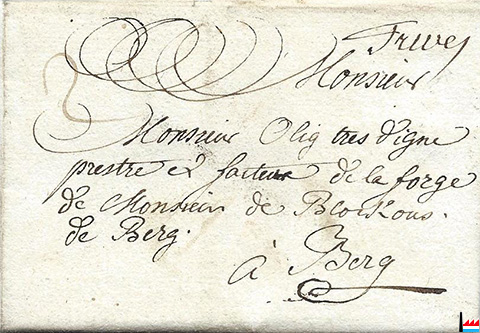 Trives
Monsieur
2
Monsieur Olig tres digne
prestre et facteur de la forge
de Monsieur de Blockous.
de Berg.
à Berg